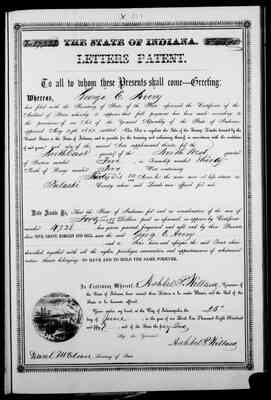 THE STATE OF INDIANA.
LETTERS PATENT.
To all to whom these Presents shall come—Greeting:
Whereas, George C. Avery
has filed with the Secretary of State of the State aforesaid the Certificate of the
Auditor of State whereby it appears that full payment has been made according to
the provisions of an Act of the General Assembly of the State of Indiana
approved May
of said grant," and acts of the several Acts supplemental thereto, for the
NorthEast quarter of the North West quarter
of Section number Five in Township number Thirty
North of Range number Five West containing
Acres, be the same more or less situate in
Pulaski County where said Lands were offered for sale.
Now Know Ye, That the State of Indiana for and in consideration of the sum of
Dollars paid as aforesaid as appears by Certificate
numbered 4728 has given granted bargained and sold and by these Presents
does GIVE, GRANT, BARGAIN AND SELL, unto the said George C. Avery
and to his heirs and assigns the said Tract above
described together with all the rights privileges immunities and appurtenances of whatsoever
nature thereto belonging TO HAVE AND TO HOLD THE SAME FOREVER.
In Testimony Whereof, I, Ashbel P. Willard, Governor of
the State of Indiana have caused these Letters to be made Patent, and the Seal of the
State to be hereunto affixed.
Given under my hand, at the City of Indianapolis, the 25th
day of June in the year of our Lord One Thousand Eight Hundred
and and of the State the forty
By the Governor:
Ashbel P. Willard
Daniel McClure Secretary of State